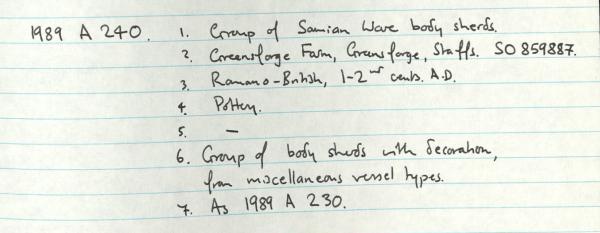 1989 A 240. 1. Group of Samian Ware body sherds.
2. Greensforge Farm, Greensforge, Staffs. SO 859887.
3. Romano-British, 1-2nd cents. A.D.
4. Pottery.
5. —
6. Group of body sherds with decoration,
from miscellaneous vessel types.
7. As 1989 A 230.